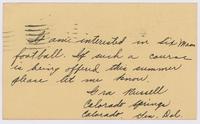 I am interested in six Man
football. If such a course
is being offered this summer
please let me know.
Ira Russell
Colorado Springs
Colorado